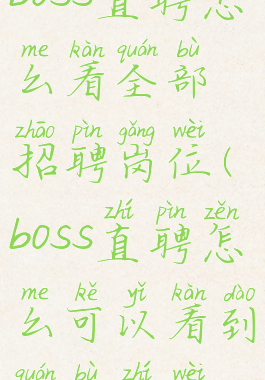 boss直聘怎
me kàn quán bù
么看全部
zhāo pìn gǎng wèi
招聘岗位(
zhí pìn zěn
boss直聘怎
me kě yǐ kàn dào
么可以看到
quán bù zhí wèi